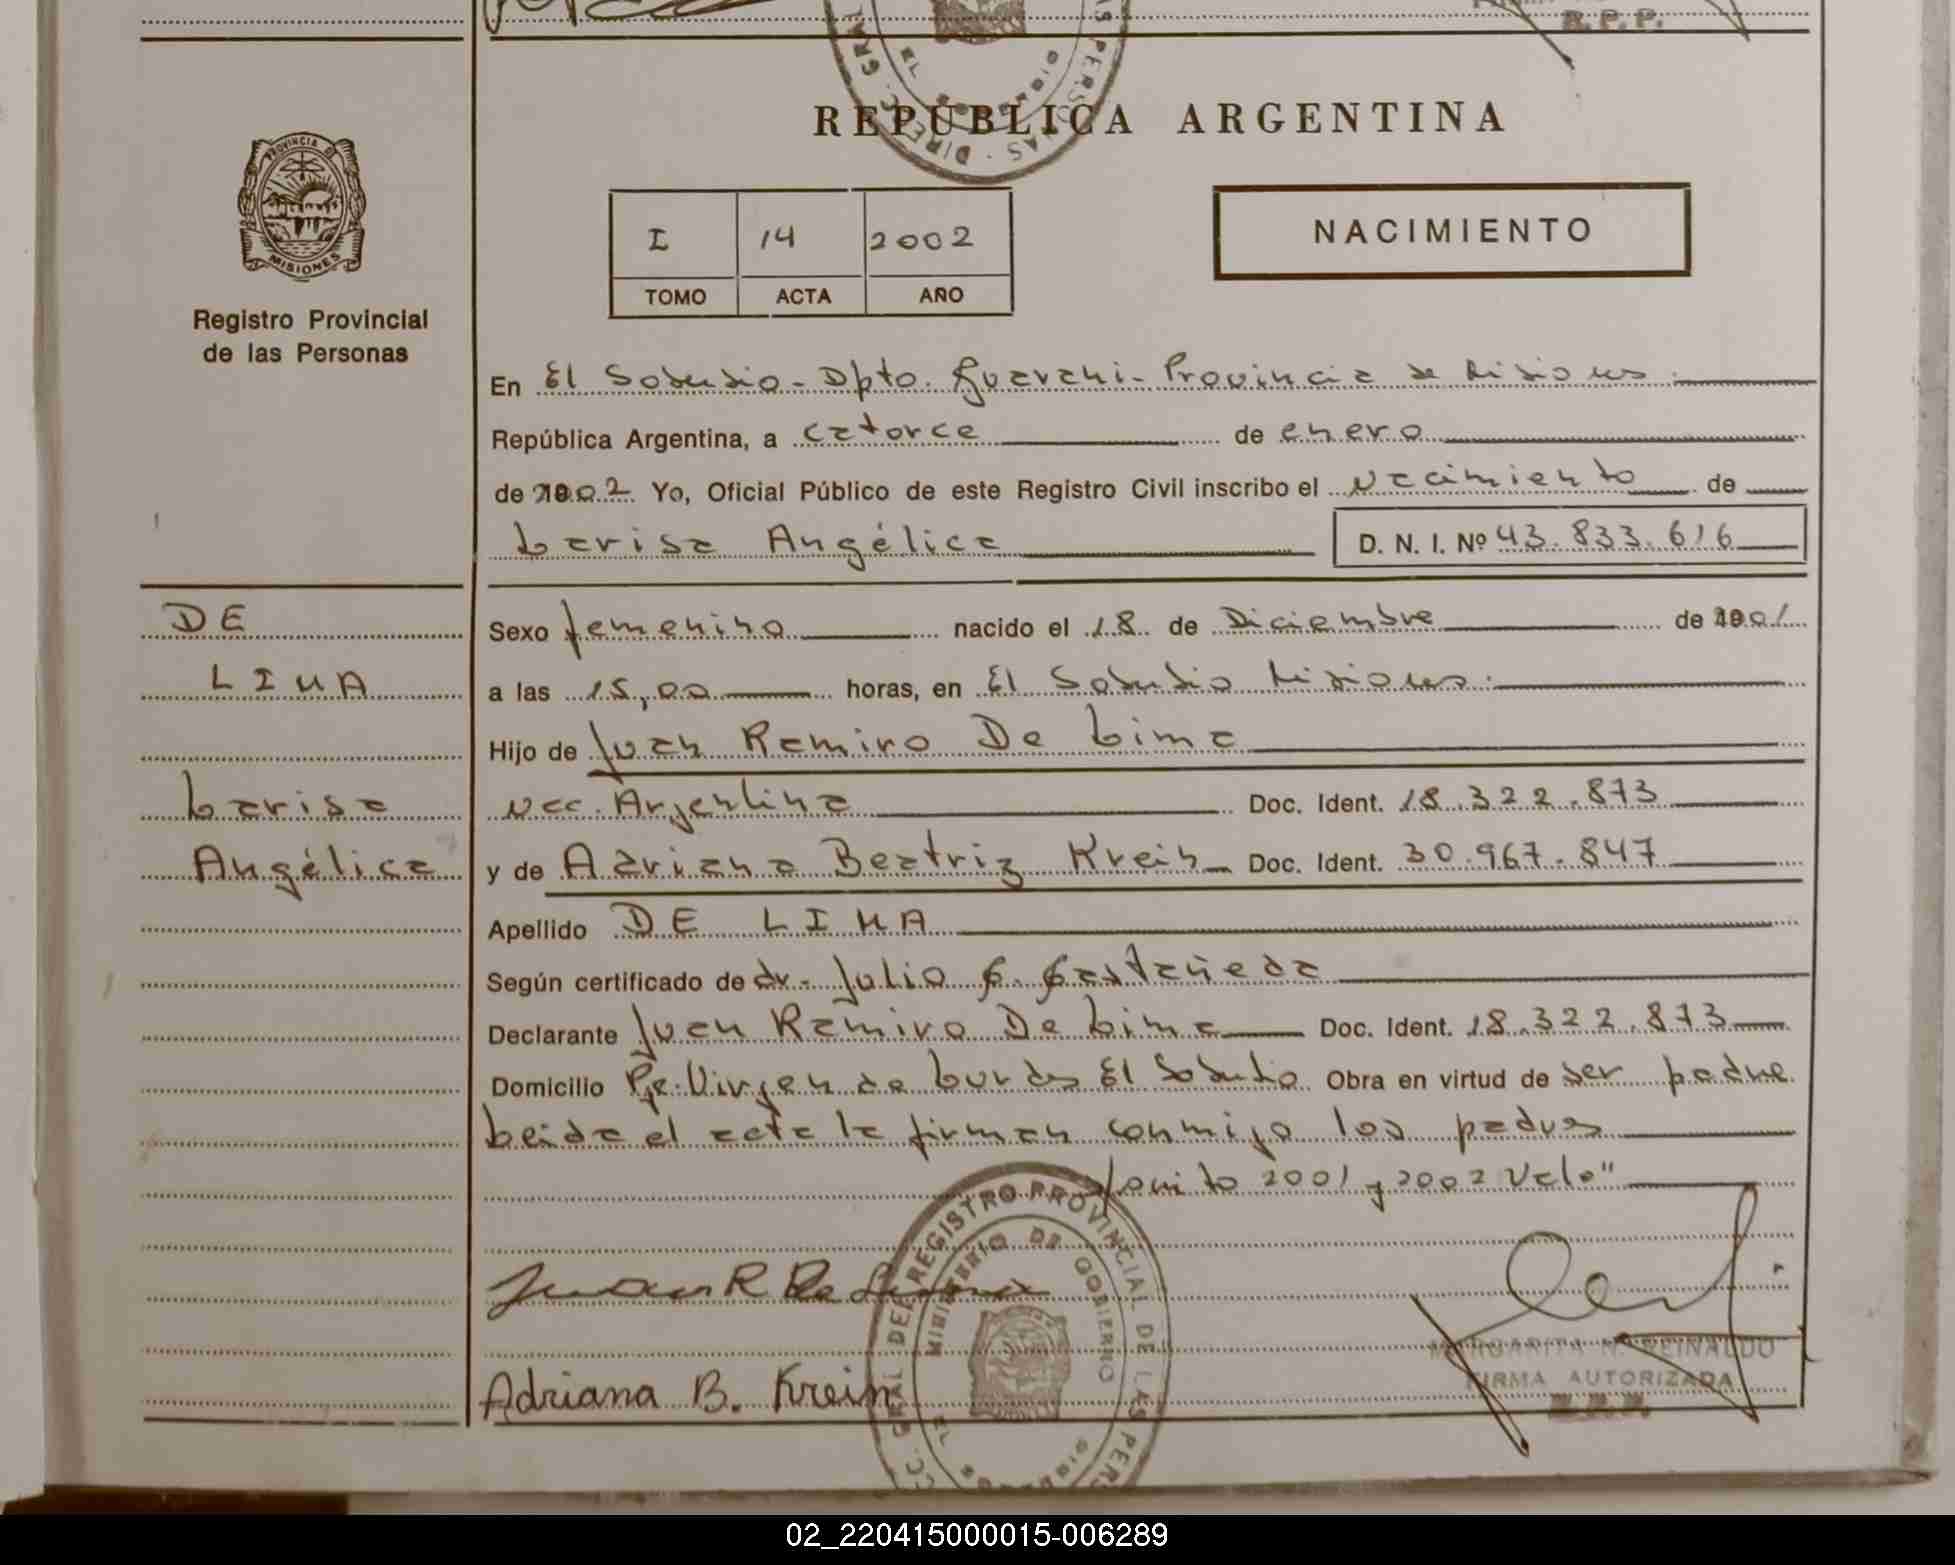 R.P.P.
REPUBLICA ARGENTINA
PROVINCIA DE
MISIONES
Registro Provincial
de las Personas
I 14 2002
TOMO ACTA AÑO
NACIMIENTO
En El Soberbio - Dpto. Guarani - Provincia de Misiones.
República Argentina, a catorce de enero
de 2002 Yo, Oficial Público de este Registro Civil inscribo el nacimiento de
Larisa Angélica D. N. I. Nº 43.833.616
DE
LIMA
Larisa
Angélica
Sexo femenino nacido el 18 de Diciembre de 2001
a las 15,00 horas, en El Soberbio Misiones.
Hijo de Juan Ramiro De Lima
nac. Argentina Doc. Ident. 18.322.873
y de Adriana Beatriz Krein Doc. Ident. 30.967.847
Apellido DE LIMA
Según certificado de dr. Julio C. Castañeda
Declarante Juan Ramiro De Lima Doc. Ident. 18.322.873
Domicilio Pje. Virgen de Lurdes El Soberbio Obra en virtud de ser padre
Leida el acta la firman conmigo los padres
2001 y 2002 Vale"
Juan R De Lima
Adriana B. Krein
DIRECC. GRAL DEL REGISTRO PROVINCIAL DE LAS PERSONAS
MINISTERIO DE GOBIERNO
MARGARITA N. REINALDO
FIRMA AUTORIZADA
R.P.P.
02_220415000015-006289